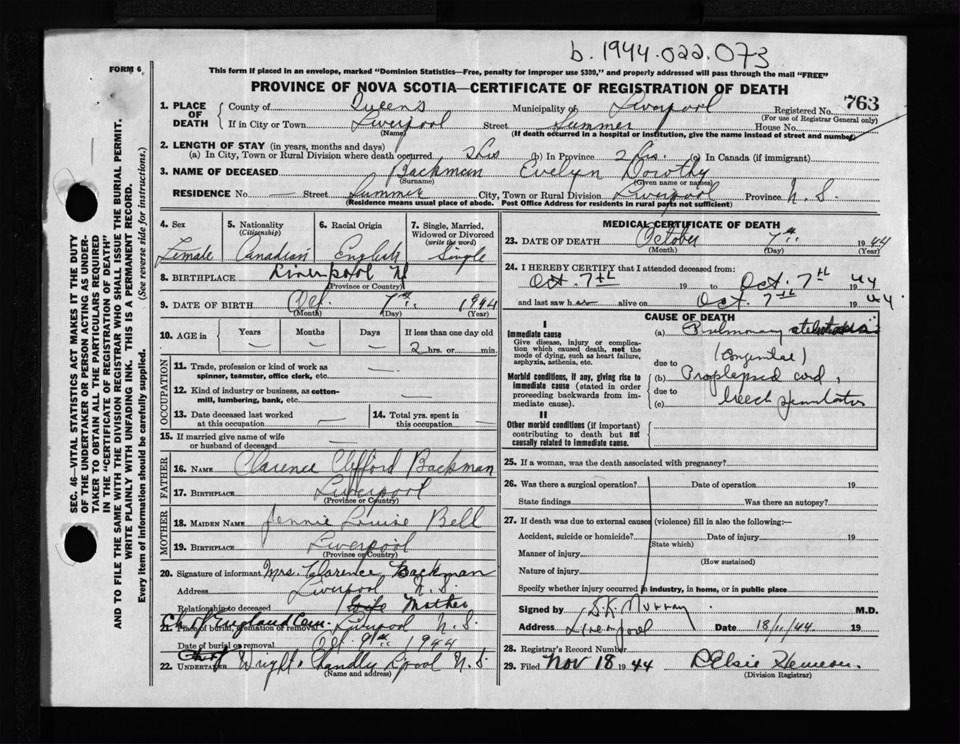 b. 1944.022.073
FORM 6
This form if placed in an envelope, marked "Dominion Statistics—Free, penalty for improper use $300," and properly addressed will pass through the mail "FREE"
PROVINCE OF NOVA SCOTIA—CERTIFICATE OF REGISTRATION OF DEATH
1. PLACE OF DEATH County of Queens Municipality of Liverpool Registered No. 763
(For use of Registrar General only)
If in City or Town Liverpool Street Summer House No.
(Name) (If death occurred in a hospital or institution, give the name instead of street and number)
2. LENGTH OF STAY (in years, months and days)
(a) In City, Town or Rural Division where death occurred 2 hrs (b) In Province 2 hrs. (c) In Canada (if immigrant)
3. NAME OF DECEASED Backman Evelyn Dorothy
(Surname) (Given name or names)
RESIDENCE No. — Street Summer City, Town or Rural Division Liverpool Province N.S.
(Residence means usual place of abode. Post Office Address for residents in rural parts not sufficient)
SEC. 46—VITAL STATISTICS ACT MAKES IT THE DUTY
OF THE UNDERTAKER OR PERSON ACTING AS UNDER-
TAKER TO OBTAIN ALL THE PARTICULARS REQUIRED
IN THE "CERTIFICATE OF REGISTRATION OF DEATH"
AND TO FILE THE SAME WITH THE DIVISION REGISTRAR WHO SHALL ISSUE THE BURIAL PERMIT.
WRITE PLAINLY WITH UNFADING INK. THIS IS A PERMANENT RECORD.
Every item of information should be carefully supplied. (See reverse side for instructions.)
4. Sex 5. Nationality (Citizenship) 6. Racial Origin 7. Single, Married, Widowed or Divorced (write the word)
Female Canadian English Single
8. BIRTHPLACE Liverpool N
(Province or Country)
9. DATE OF BIRTH Oct. 7th 1944
(Month) (Day) (Year)
10. AGE in Years Months Days If less than one day old
— — — 2 hrs. or min.
OCCUPATION
11. Trade, profession or kind of work as spinner, teamster, office clerk, etc. —
12. Kind of industry or business, as cotton-mill, lumbering, bank, etc. —
13. Date deceased last worked at this occupation — 14. Total yrs. spent in this occupation —
15. If married give name of wife or husband of deceased —
FATHER
16. NAME Clarence Clifford Backman
17. BIRTHPLACE Liverpool
(Province or Country)
MOTHER
18. MAIDEN NAME Jennie Louise Bell
19. BIRTHPLACE Liverpool
(Province or Country)
20. Signature of informant Mrs. Clarence Backman
Address Liverpool N.S.
Relationship to deceased Wife Mother
Ch. of England Cem.
21. Place of burial, cremation or removal Liverpool N.S.
Date of burial or removal Oct. 9th 1944
22. UNDERTAKER Wright Chandler Lpool N.S.
(Name and address)
MEDICAL CERTIFICATE OF DEATH
23. DATE OF DEATH October 7th 1944
(Month) (Day) (Year)
24. I HEREBY CERTIFY that I attended deceased from:
Oct. 7th 19 to Oct. 7th 1944
and last saw her alive on Oct. 7th 1944.
CAUSE OF DEATH
I
Immediate cause (a) Pulmonary
Give disease, injury or complication which caused death, not the mode of dying, such as heart failure, asphyxia, asthenia, etc.
due to (Congenital)
Morbid conditions, if any, giving rise to immediate cause (stated in order proceeding backwards from immediate cause).
(b) Proplapsed cord,
due to
(c) breech
II
Other morbid conditions (if important) contributing to death but not causally related to immediate cause.
25. If a woman, was the death associated with pregnancy?
26. Was there a surgical operation? Date of operation 19
State findings Was there an autopsy?
27. If death was due to external causes (violence) fill in also the following:—
Accident, suicide or homicide? Date of injury 19
(State which)
Manner of injury
(How sustained)
Nature of injury
Specify whether injury occurred in industry, in home, or in public place
Signed by S.K. Murray M.D.
Address Liverpool Date 18/11/44. 19
28. Registrar's Record Number
29. Filed Nov 18 1944
(Division Registrar)